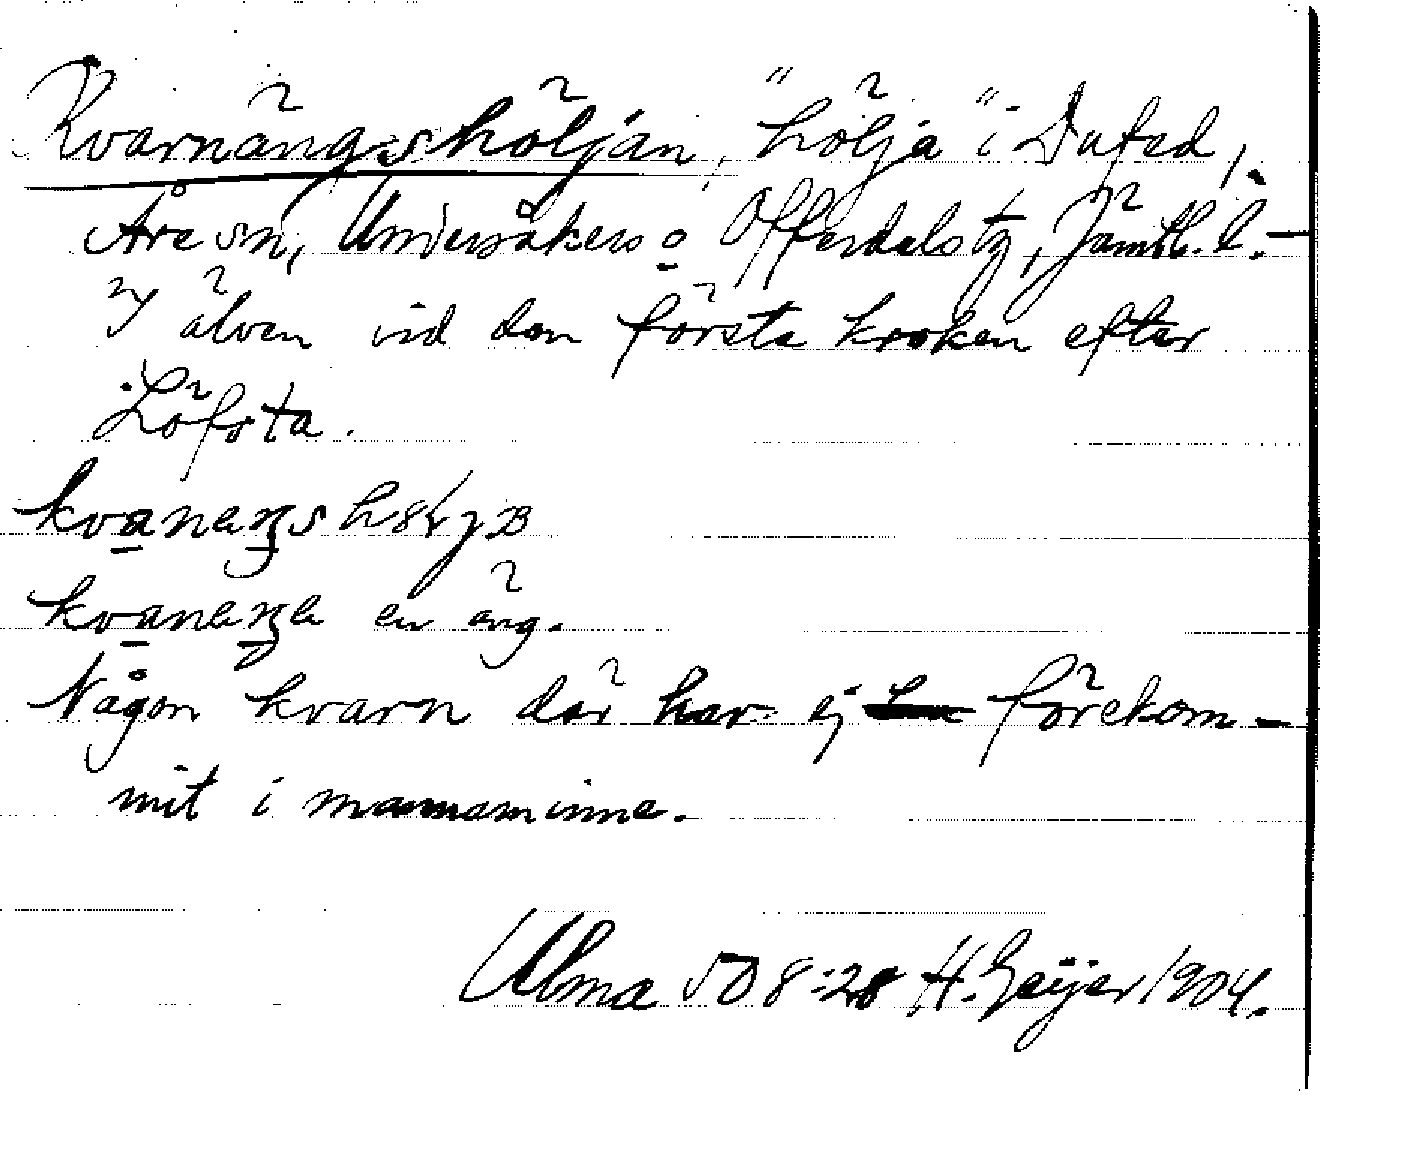 Kvarnängshöljan, "hölja" i Dufed,
Åre sn, Undersåkers o Offerdals tg, Jämtl. l. –
I älven vid den första kroken efter
Löfsta.
en äng.
Någon kvarn där har ej förekom-
mit i mannaminne.
Ulma 508:28 H. Geijer 1904.